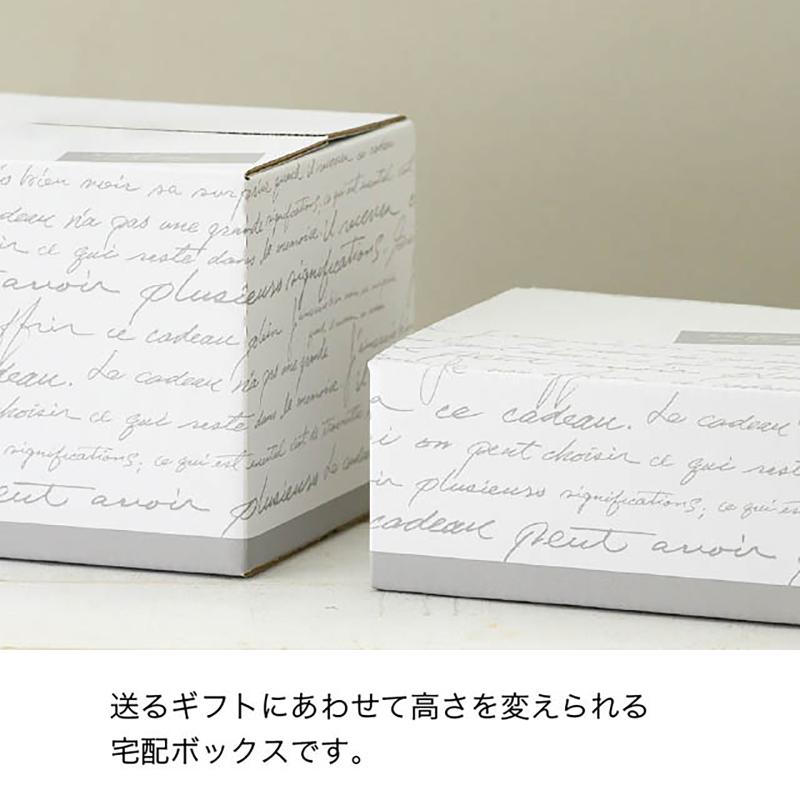 is bien noir sa surprise quand il
cadeau n'a pas une grande significations, ce qui est mental
ir ce qui reste dans le memoire. Il
avoir plusieurs significations.
ffrir ce cadeau plein
deau. Le cadeau n'a pas une grande
choisir ce qui reste dans le memoire
significations; ce qui est mental c'est de transmettre
peut avoir plusieurs Le
a ce cadeau. Le cadeau
i on peut choisir ce qui rest
ir plusieurs significations; ce qui est
cadeau peut avoir
送るギフトにあわせて高さを変えられる
宅配ボックスです。